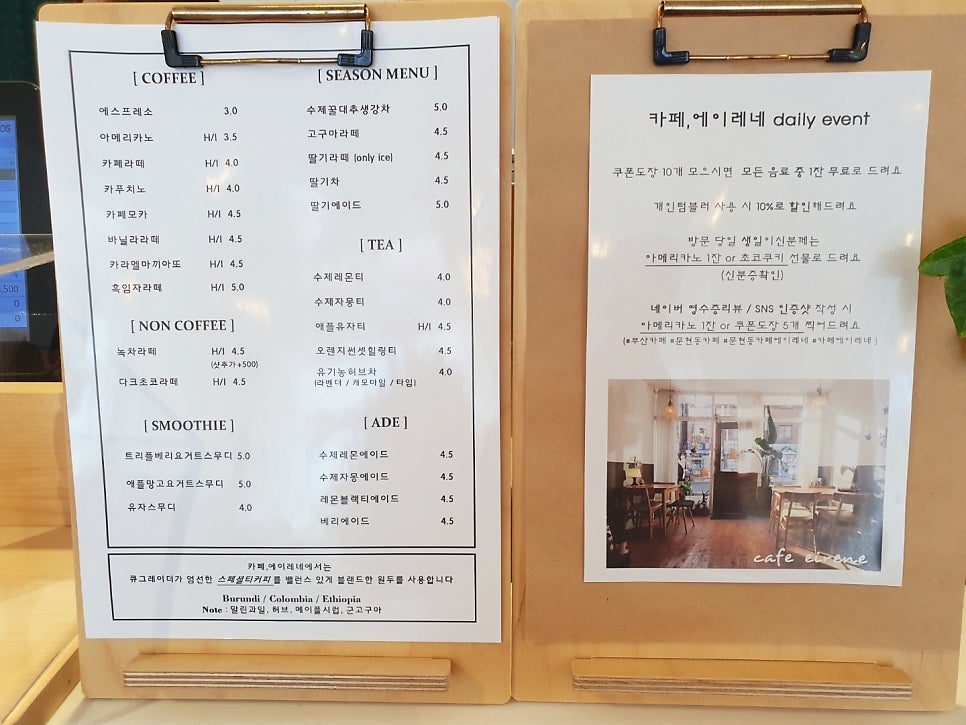 [ COFFEE ]
에스프레소 3.0
아메리카노 H/I 3.5
카페라떼 H/I 4.0
카푸치노 H/I 4.0
카페모카 H/I 4.5
바닐라라떼 H/I 4.5
카라멜마끼아또 H/I 4.5
흑임자라떼 H/I 5.0
[ NON COFFEE ]
녹차라떼 H/I 4.5
(샷추가+500)
다크초코라떼 H/I 4.5
[ SMOOTHIE ]
트리플베리요거트스무디 5.0
애플망고요거트스무디 5.0
유자스무디 4.0
[ SEASON MENU ]
수제꿀대추생강차 5.0
고구마라떼 4.5
딸기라떼 (only ice) 4.5
딸기차 4.5
딸기에이드 5.0
[ TEA ]
수제레몬티 4.0
수제자몽티 4.0
애플유자티 H/I 4.5
오렌지썬셋힐링티 4.5
유기농허브차 4.0
(라벤더 / 캐모마일 / 타임)
[ ADE ]
수제레몬에이드 4.5
수제자몽에이드 4.5
레몬블랙티에이드 4.5
베리에이드 4.5
카페,에이레네에서는
큐그레이더가 엄선한 스페셜티커피를 밸런스 있게 블랜드한 원두를 사용합니다
Burundi / Colombia / Ethiopia
Note : 말린과일, 허브, 메이플시럽, 군고구마
카페,에이레네 daily event
쿠폰도장 10개 모으시면 모든 음료 중 1잔 무료로 드려요
개인텀블러 사용 시 10%로 할인해드려요
방문 당일 생일이신분께는
아메리카노 1잔 or 초코쿠키 선물로 드려요
(신분증확인)
네이버 영수증리뷰 / SNS 인증샷 작성 시
아메리카노 1잔 or 쿠폰도장 5개 찍어드려요
(#부산카페 #문현동카페 #문현동카페에이레네 #카페에이레네)
cafe eirene